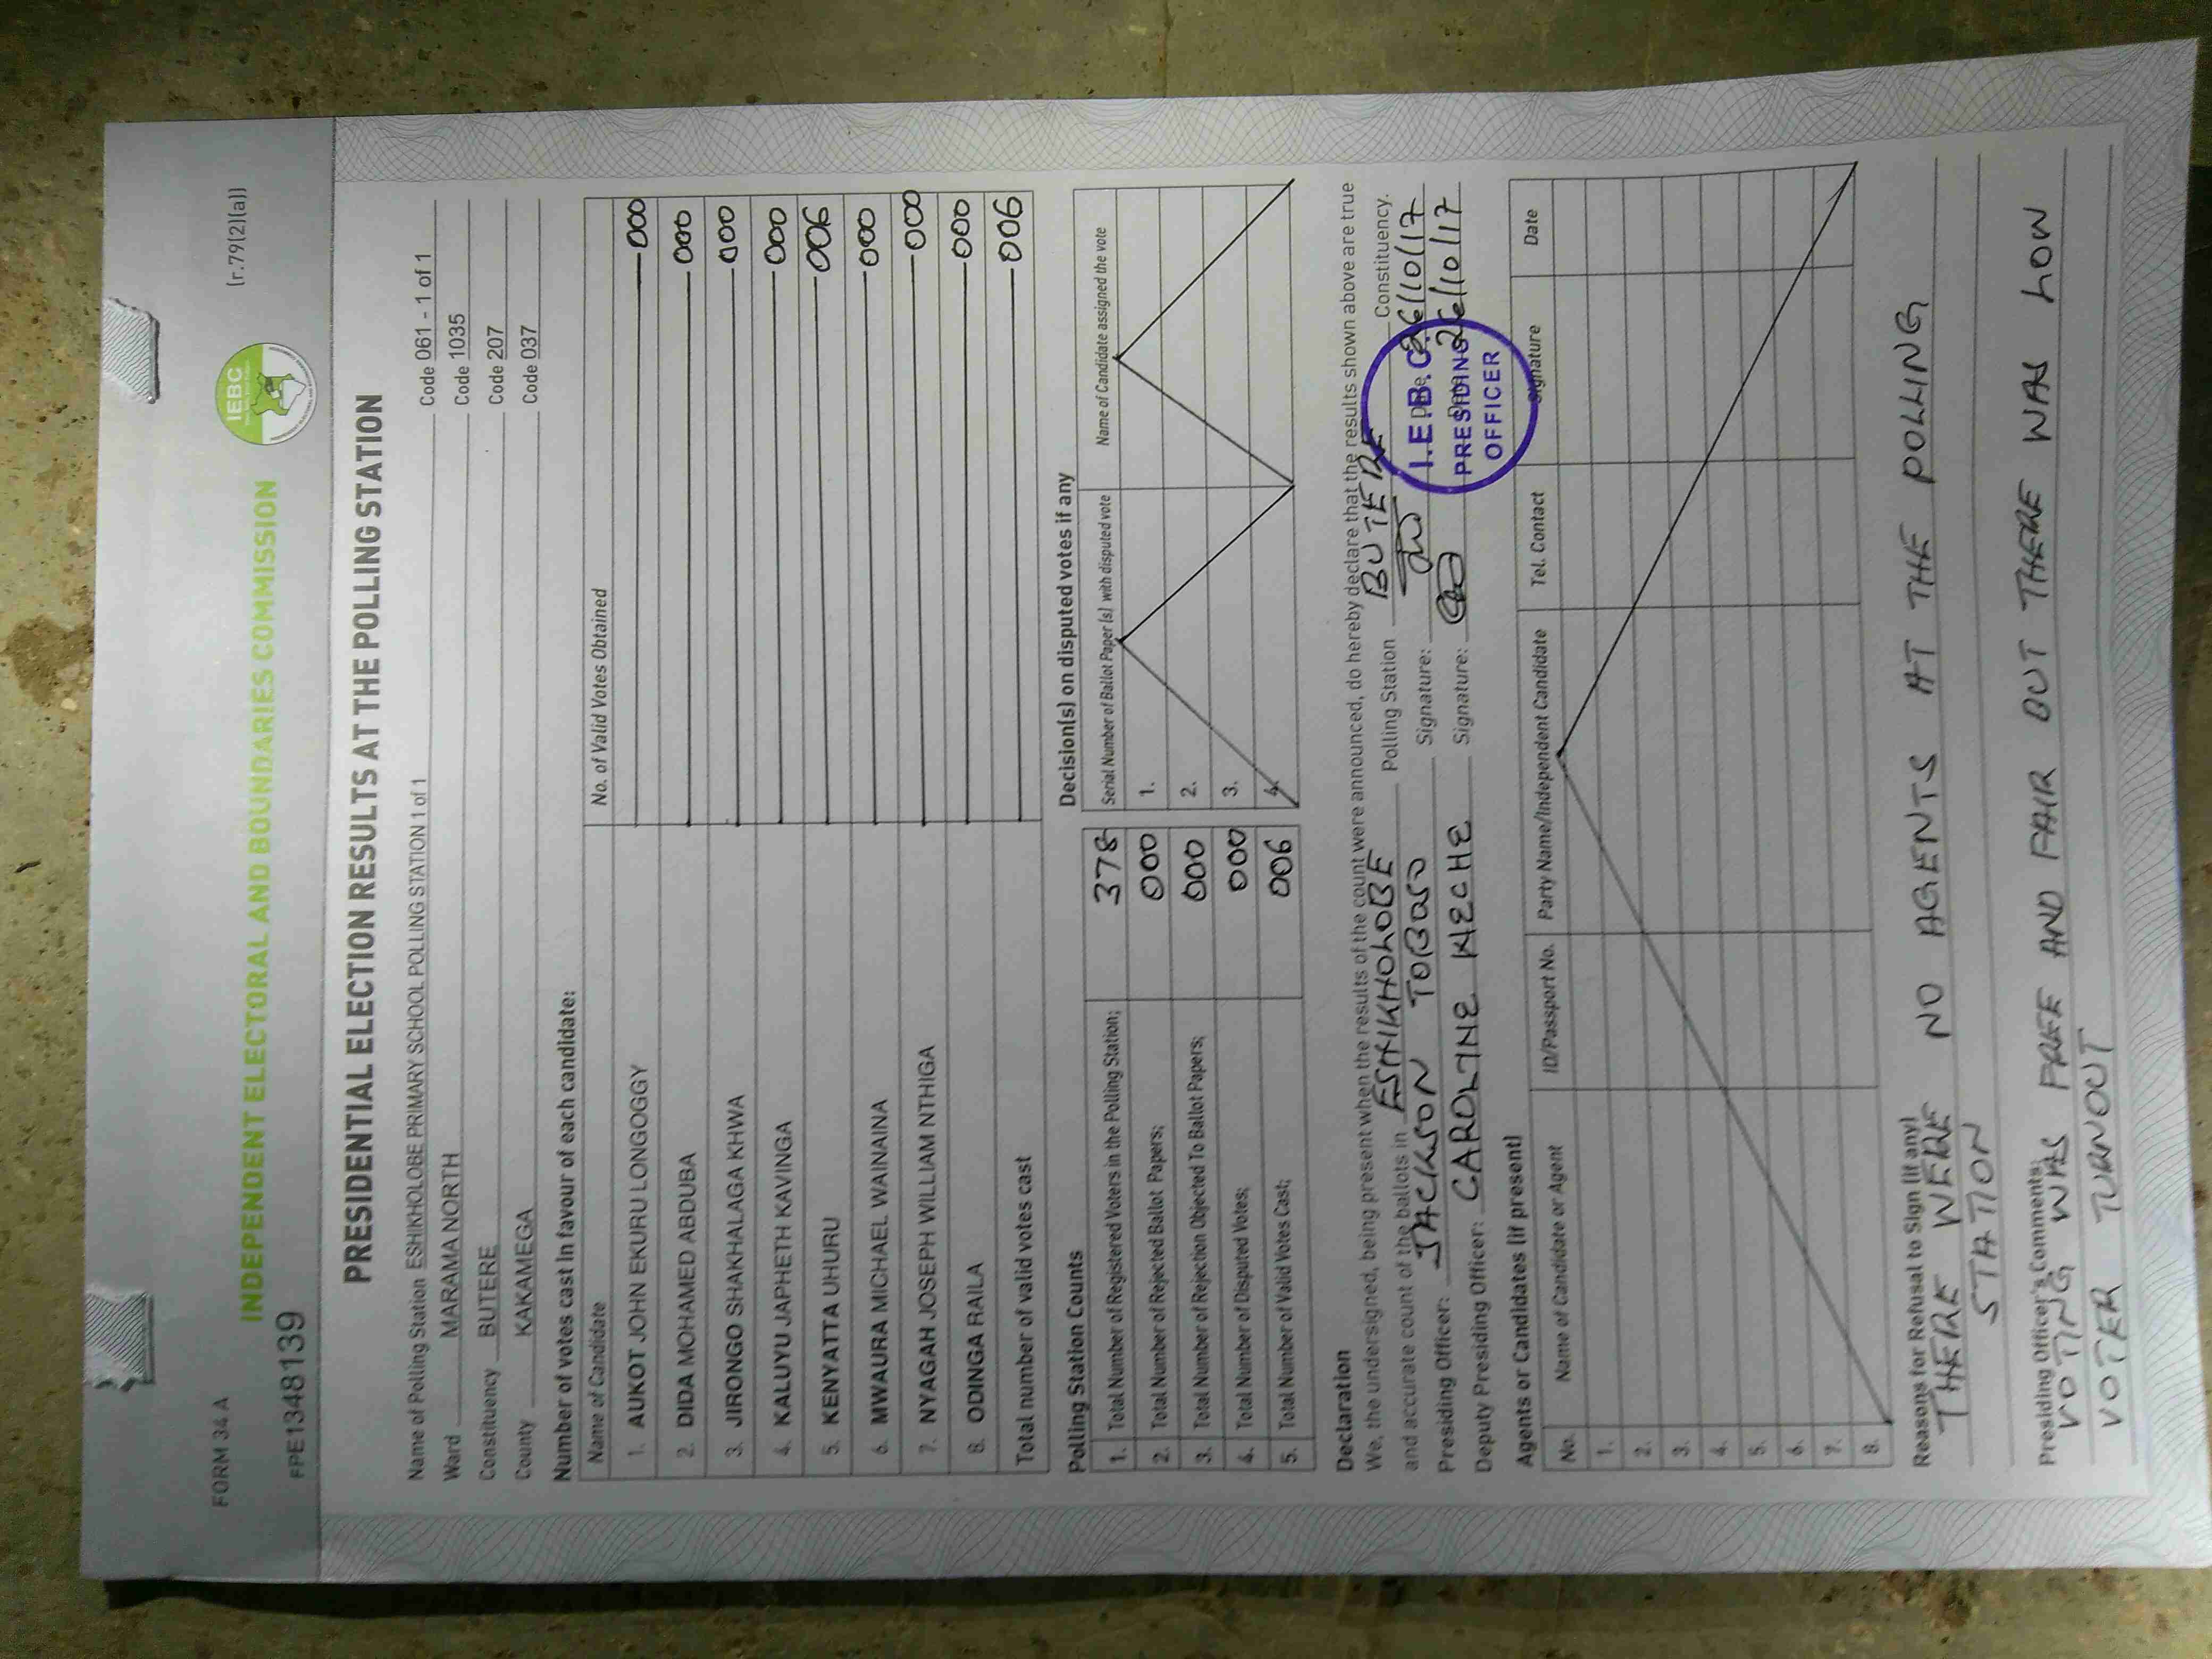 FORM 34A
[r.79(2)(a)]
IEBC
INDEPENDENT ELECTORAL AND BOUNDARIES COMMISSION
FPE1348139
PRESIDENTIAL ELECTION RESULTS AT THE POLLING STATION
Name of Polling Station ESHIKHOLOBE PRIMARY SCHOOL POLLING STATION 1 of 1 Code 061 - 1 of 1
Ward MARAMA NORTH Code 1035
Constituency BUTERE Code 207
County KAKAMEGA Code 037
Number of votes cast In favour of each candidate:
Name of Candidate No. of Valid Votes Obtained
1. AUKOT JOHN EKURU LONGOGGY 000
2. DIDA MOHAMED ABDUBA 000
3. JIRONGO SHAKHALAGA KHWA 000
4. KALUYU JAPHETH KAVINGA 000
5. KENYATTA UHURU 006
6. MWAURA MICHAEL WAINAINA 000
7. NYAGAH JOSEPH WILLIAM NTHIGA 000
8. ODINGA RAILA 000
Total number of valid votes cast 006
Polling Station Counts
1. Total Number of Registered Voters in the Polling Station; 378
2. Total Number of Rejected Ballot Papers; 000
3. Total Number of Rejection Objected To Ballot Papers; 000
4. Total Number of Disputed Votes; 000
5. Total Number of Valid Votes Cast; 006
Decision(s) on disputed votes if any
Serial Number of Ballot Paper (s) with disputed vote Name of Candidate assigned the vote
1.
2.
3.
4.
Declaration
We, the undersigned, being present when the results of the count were announced, do hereby declare that the results shown above are true
and accurate count of the ballots in ESHIKHOLOBE Polling Station BUTERE Constituency.
Presiding Officer: JACKSON TOBOSO Signature: Date 26/10/17
Deputy Presiding Officer: CAROLINE WECHE Signature: 26/10/17
I.E.B.C.
PRESIDING
OFFICER
Agents or Candidates (if present)
No. Name of Candidate or Agent ID/Passport No. Party Name/Independent Candidate Tel. Contact Signature Date
1.
2.
3.
4.
5.
6.
7.
8.
Reasons for Refusal to Sign (if any)
THERE WERE NO AGENTS AT THE POLLING
STATION
Presiding Officer's Comments:
VOTING WAS FREE AND FAIR BUT THERE WAS LOW
VOTER TURNOUT